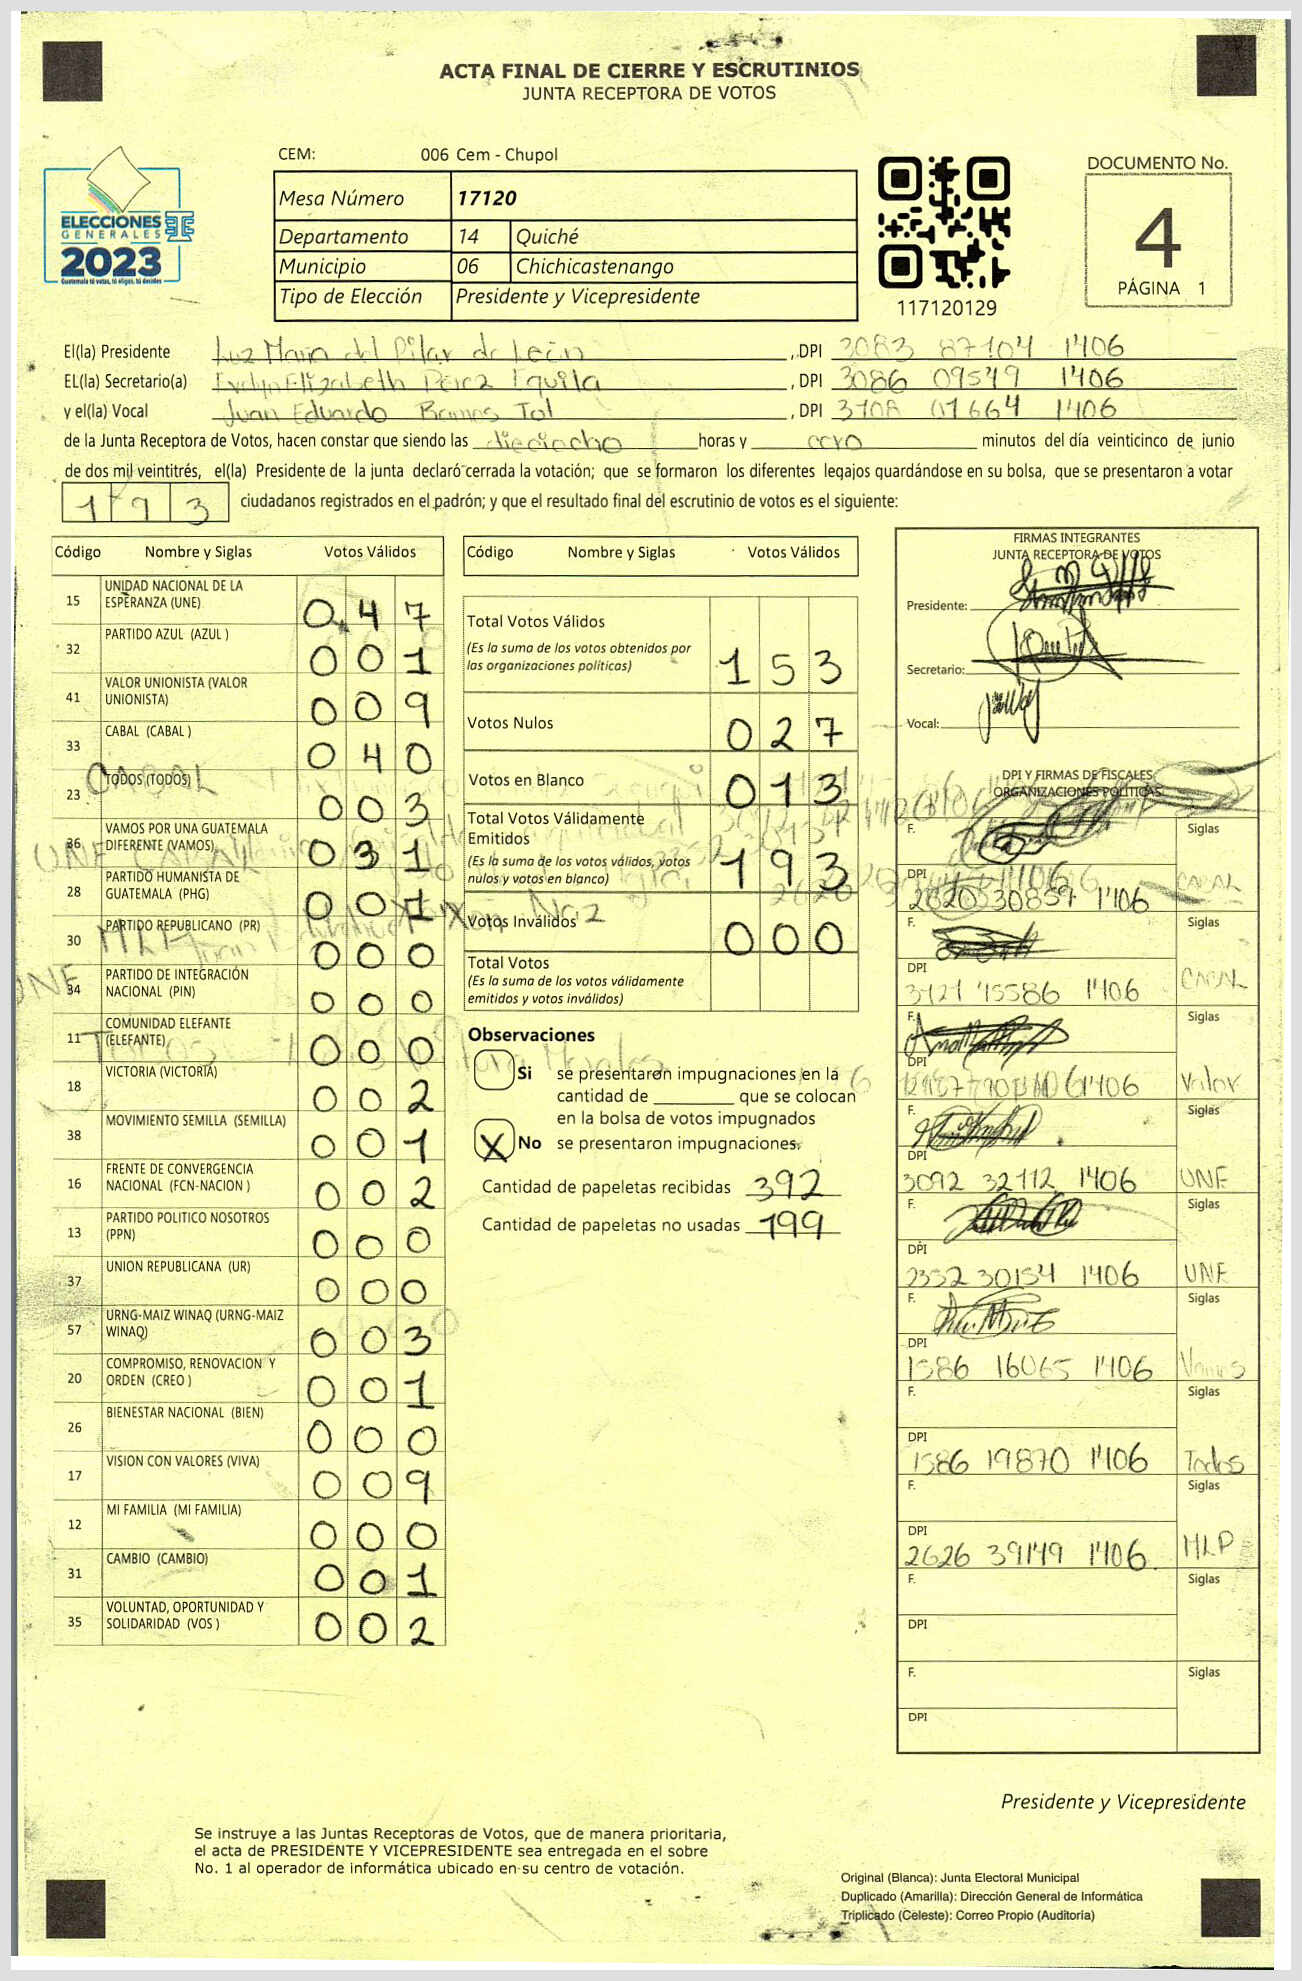 ACTA FINAL DE CIERRE Y ESCRUTINIOS
JUNTA RECEPTORA DE VOTOS
ELECCIONES
GENERALES
2023
Guatemala tú votas, tú eliges, tú decides
CEM: 006 Cem - Chupol
Mesa Número 17120
Departamento 14 Quiché
Municipio 06 Chichicastenango
Tipo de Elección Presidente y Vicepresidente
117120129
DOCUMENTO No.
4
PÁGINA 1
El(la) Presidente Luz Maria del Pilar de León , DPI 3083 87104 1406
EL(la) Secretario(a) Evelyn Elizabeth Pérez Equila , DPI 3086 09549 1406
y el(la) Vocal Juan Eduardo Ramos Tol , DPI 1406
de la Junta Receptora de Votos, hacen constar que siendo las dieciocho horas y cero minutos del día veinticinco de junio
de dos mil veintitrés, el(la) Presidente de la junta declaró cerrada la votación; que se formaron los diferentes legajos guardándose en su bolsa, que se presentaron a votar
193 ciudadanos registrados en el padrón; y que el resultado final del escrutinio de votos es el siguiente:
Código Nombre y Siglas Votos Válidos
15 UNIDAD NACIONAL DE LA ESPERANZA (UNE) 0 4 7
32 PARTIDO AZUL (AZUL ) 0 0 1
41 VALOR UNIONISTA (VALOR UNIONISTA) 0 0 9
33 CABAL (CABAL ) 0 4 0
23 TODOS (TODOS) 0 0 3
36 VAMOS POR UNA GUATEMALA DIFERENTE (VAMOS) 0 3 1
28 PARTIDO HUMANISTA DE GUATEMALA (PHG) 0 0 1
30 PARTIDO REPUBLICANO (PR) 0 0 0
34 PARTIDO DE INTEGRACIÓN NACIONAL (PIN) 0 0 0
11 COMUNIDAD ELEFANTE (ELEFANTE) 0 0 0
18 VICTORIA (VICTORIA) 0 0 2
38 MOVIMIENTO SEMILLA (SEMILLA) 0 0 1
16 FRENTE DE CONVERGENCIA NACIONAL (FCN-NACION ) 0 0 2
13 PARTIDO POLITICO NOSOTROS (PPN) 0 0 0
37 UNION REPUBLICANA (UR) 0 0 0
57 URNG-MAIZ WINAQ (URNG-MAIZ WINAQ) 0 0 3
20 COMPROMISO, RENOVACION Y ORDEN (CREO ) 0 0 1
26 BIENESTAR NACIONAL (BIEN) 0 0 0
17 VISION CON VALORES (VIVA) 0 0 9
12 MI FAMILIA (MI FAMILIA) 0 0 0
31 CAMBIO (CAMBIO) 0 0 1
35 VOLUNTAD, OPORTUNIDAD Y SOLIDARIDAD (VOS ) 0 0 2
Código Nombre y Siglas Votos Válidos
Total Votos Válidos
(Es la suma de los votos obtenidos por
las organizaciones políticas) 1 5 3
Votos Nulos 0 2 7
Votos en Blanco 0 1 3
Total Votos Válidamente
Emitidos
(Es la suma de los votos válidos, votos
nulos y votos en blanco) 1 9 3
Votos Inválidos 0 0 0
Total Votos
(Es la suma de los votos válidamente
emitidos y votos inválidos)
Observaciones
Si se presentaron impugnaciones en la
cantidad de ________ que se colocan
en la bolsa de votos impugnados
X No se presentaron impugnaciones.
Cantidad de papeletas recibidas 392
Cantidad de papeletas no usadas 199
FIRMAS INTEGRANTES
JUNTA RECEPTORA DE VOTOS
Presidente:
Secretario:
Vocal:
DPI Y FIRMAS DE FISCALES
ORGANIZACIONES POLÍTICAS
F. Siglas
DPI 2820 30857 1406 CABAL
F. Siglas
DPI 15586 1406 CABAL
F. Siglas
DPI 1406 Valor
F. Siglas
DPI 3092 32112 1406 UNE
F. Siglas
DPI 2352 30154 1406 UNE
F. Siglas
DPI 1586 16065 1406 Vamos
F. Siglas
DPI 1586 19870 1406 Todos
F. Siglas
DPI 2626 39149 1406 MLP
F. Siglas
DPI
F. Siglas
DPI
Presidente y Vicepresidente
Se instruye a las Juntas Receptoras de Votos, que de manera prioritaria,
el acta de PRESIDENTE Y VICEPRESIDENTE sea entregada en el sobre
No. 1 al operador de informática ubicado en su centro de votación.
Original (Blanca): Junta Electoral Municipal
Duplicado (Amarilla): Dirección General de Informática
Triplicado (Celeste): Correo Propio (Auditoría)